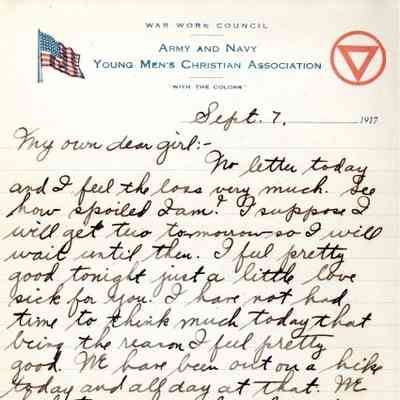 WAR WORK COUNCIL
ARMY AND NAVY
YOUNG MEN'S CHRISTIAN ASSOCIATION
"WITH THE COLORS"
Sept. 7. 1917
My own dear girl:-
No letter today
and I feel the loss very much. See
how spoiled I am? I suppose I
will get two tomorrow so I will
wait until then. I feel pretty
good tonight just a little love
sick for you. I have not had
time to think much today that
being the reason I feel pretty
good. We have been out on a hike
today and all day at that. We